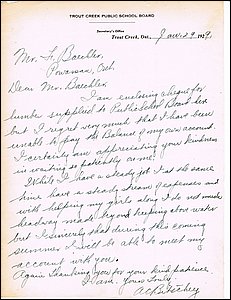 TROUT CREEK PUBLIC SCHOOL BOARD
Secretary's Office
Trout Creek, Ont., Jan 29 1929.
Mr. F. Baechler,
Powassan, Ont.
Dear Mr. Baechler,
I am enclosing cheque for
lumber supplied to Public School Board here
but I regret very much that I have been
unable to pay the Balance of my own account.
I certainly am appreciating your kindness
in waiting so patiently on me.
While I have a steady job yet at the same
time have a steady stream of expenses and
with helping my girls along I do not make
headway much beyond keeping above water
but I sincerely trust that during this coming
summer I will be able to meet my
account with you.
Again thanking you for your kind patience
I am, Yours Truly